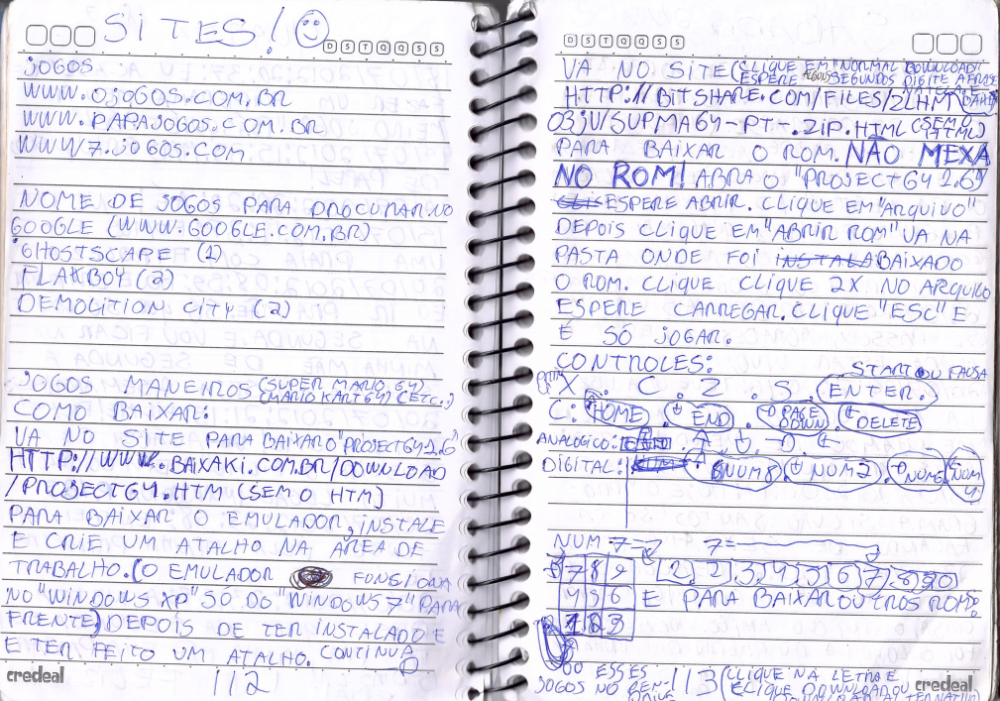 SITES!
D S T Q Q S S
JOGOS
WWW.OJOGOS.COM.BR
WWW.PAPAJOGOS.COM.BR
WWW7.JOGOS.COM
NOME DE JOGOS PARA PROCURAR NO
GOOGLE (WWW.GOOGLE.COM.BR)
GHOSTSCAPE (2)
FLAXBOY (2)
DEMOLITION CITY (2)
JOGOS MANEIROS (SUPER MARIO 64)
(MARIO KART 64) (ETC.)
COMO BAIXAR:
VA NO SITE PARA BAIXAR O "PROJECT64 1.6"
HTTP://WWW.BAIXAKI.COM.BR/DOWNLOAD
/PROJECT64.HTM (SEM O HTM)
PARA BAIXAR O EMULADOR, INSTALE
E CRIE UM ATALHO NA ÁREA DE
TRABALHO. (O EMULADOR FUNCIONA
NO "WINDOWS XP" SÓ DO "WINDOWS 7" PARA
FRENTE) DEPOIS DE TER INSTALADO E
E TER FEITO UM ATALHO. CONTINUA
credeal
112
D S T Q Q S S
VA NO SITE (CLIQUE EM "NORMAL DOWNLOAD"
ESPERE ALGUNS SEGUNDOS DIGITE
HTTP://BITSHARE.COM/FILES/2LHM
03JU/SUPMA64-PT-.ZIP.HTML (SEM O HTML)
PARA BAIXAR O ROM. NÃO MEXA
NO ROM! ABRA O "PROJECT64 1.6"
ESPERE ABRIR. CLIQUE EM "ARQUIVO"
DEPOIS CLIQUE EM "ABRIR ROM" VA NA
PASTA ONDE FOI BAIXADO
O ROM. CLIQUE CLIQUE 2X NO ARQUIVO
ESPERE CARREGAR. CLIQUE "ESC" E
É SÓ JOGAR.
CONTROLES:
START OU PAUSA
X. C. Z. S. ENTER.
C: HOME END PAGE DOWN DELETE
ANALOGICO:
DIGITAL: NUM 8 NUM 2 NUM 6 NUM 4
NUM 7=7 7=
7 8 9 1 2 3 4 5 6 7 8 9 0
4 5 6 E PARA BAIXAR OUTROS ROMS
OU ESSES
JOGOS NO
113 (CLIQUE NA LETRA E
CLIQUE DOWNLOAD OU
credeal